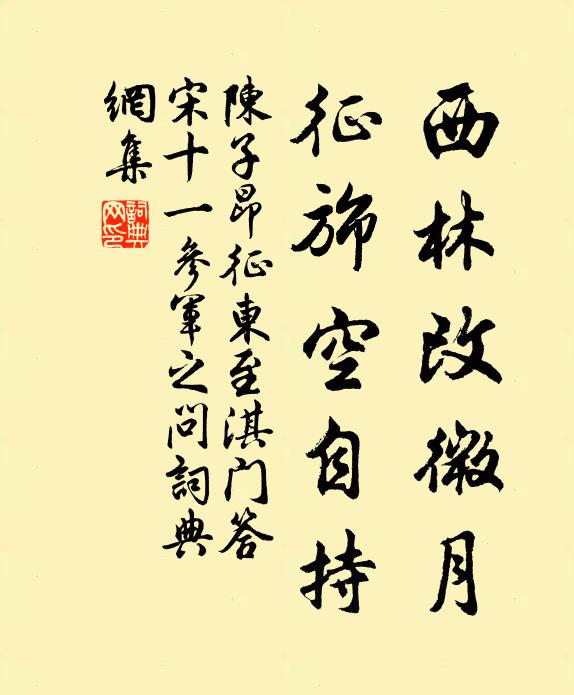 西林改微月
征旆空自持
陳子昂征東至淇門答
宋十一參軍之問詞典
網集
詞典
網印